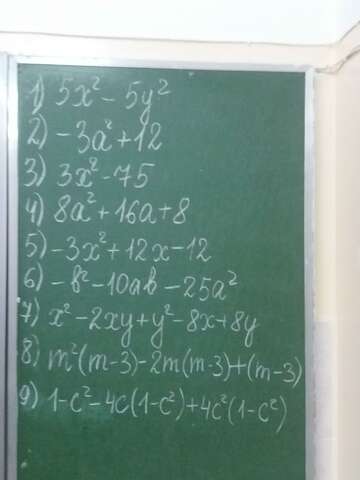 1) 5x² - 5y²
2) -3a² + 12
3) 3x² - 75
4) 8a² + 16a + 8
5) -3x² + 12x - 12
6) -b² - 10ab - 25a²
7) x² - 2xy + y² - 8x + 8y
8) m²(m-3) - 2m(m-3) + (m-3)
9) 1 - c² - 4c(1 - c²) + 4c²(1 - c²)